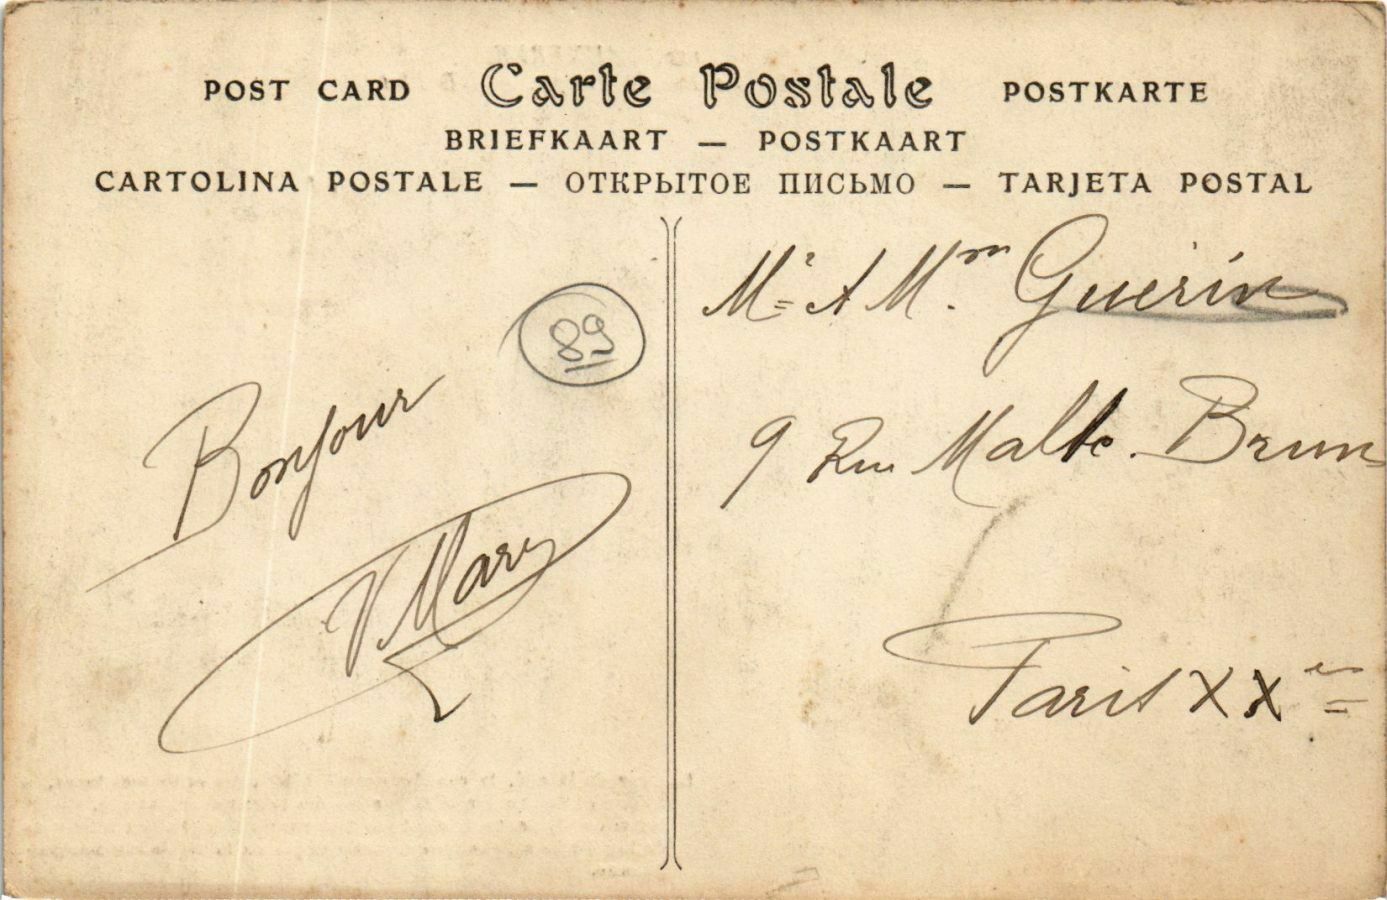 POST CARD Carte Postale POSTKARTE
BRIEFKAART — POSTKAART
CARTOLINA POSTALE — ОТКРЫТОЕ ПИСЬМО — TARJETA POSTAL
89
Bonjour
V Mary
Mr & Mme Guerin
9 Rue Malte-Brun
Paris XXe